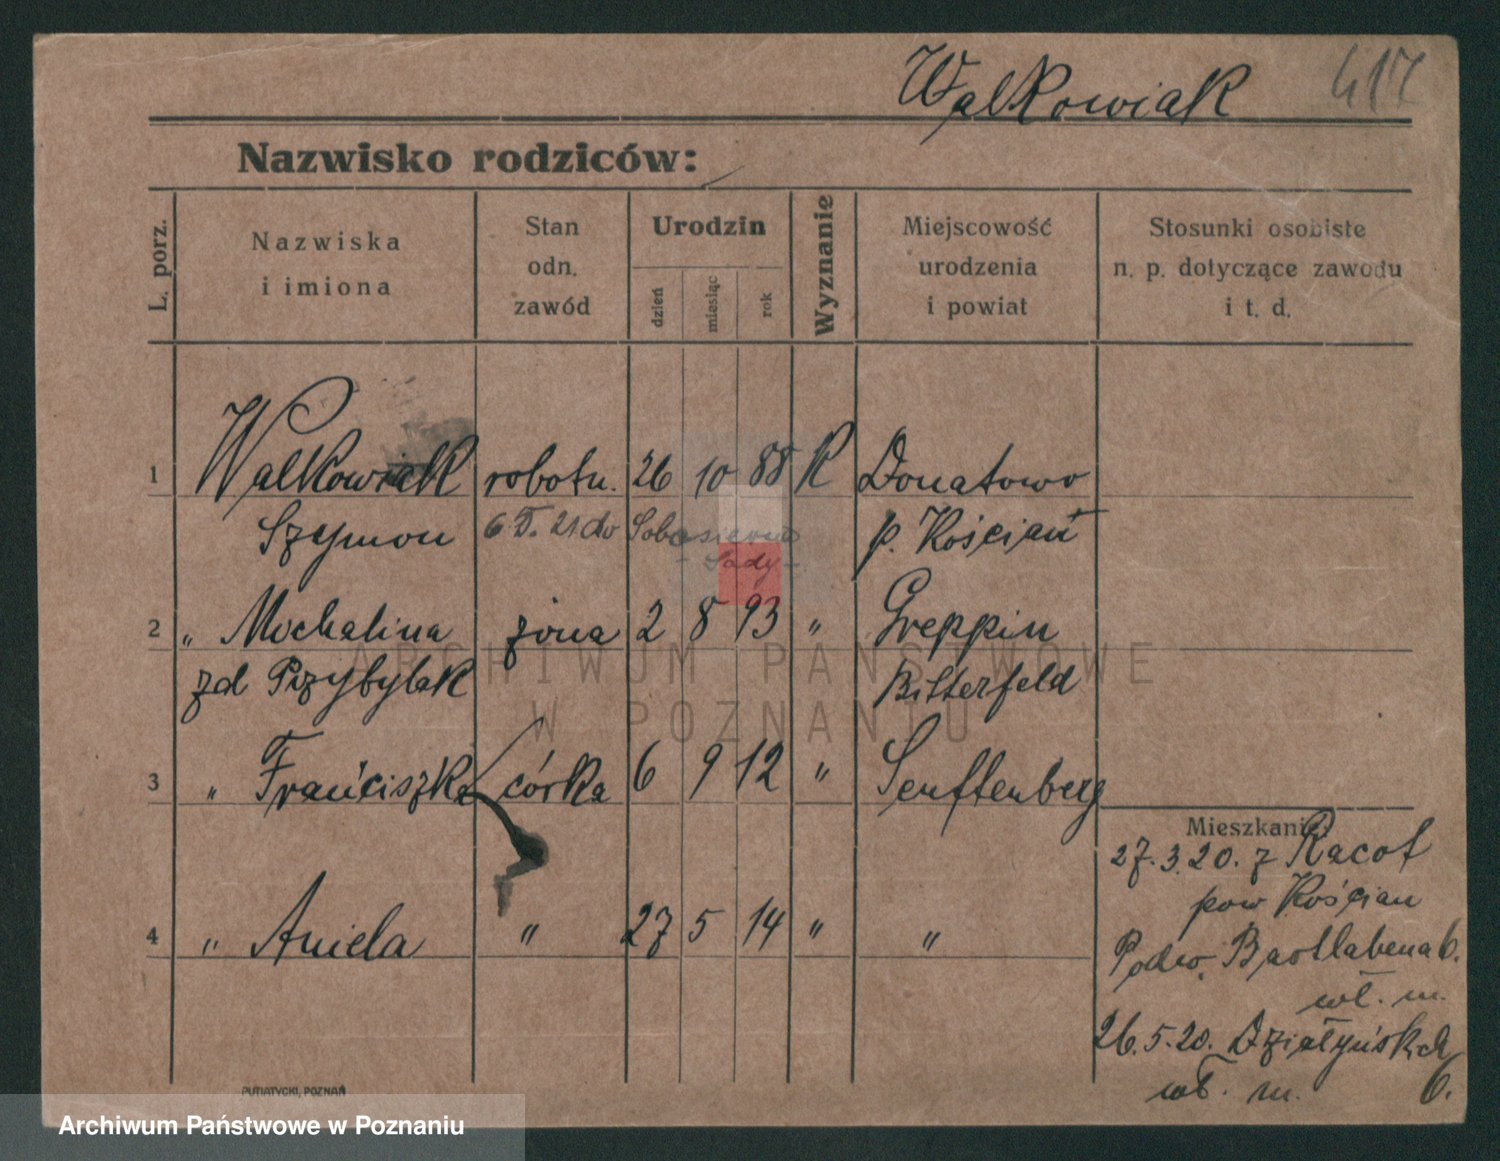 Walkowiak 417
Nazwisko rodziców:
L. porz.
Nazwiska
i imiona
Stan
odn.
zawód
Urodzin
dzień
miesiąc
rok
Wyznanie
Miejscowość
urodzenia
i powiat
Stosunki osobiste
n. p. dotyczące zawodu
i t. d.
1 Walkowiak robotn. 26 10 88 K Donatowo
Szymon 6. 21 do p. Kościan
- Sady -
2 „ Michalina żona 2 8 93 „ Greppin
zd Przybylak Bitterfeld
3 „ Franciszka córka 6 9 12 „ Senftenberg
Mieszkanie
27.3.20. z Racot
pow Kościan
4 „ Aniela „ 27 5 14 „ „
6.
wł. m.
26.5.20. Działyńskich
wł. m. 6.
PUTIATYCKI, POZNAŃ
ARCHIWUM PAŃSTWOWE
W POZNANIU
Archiwum Państwowe w Poznaniu